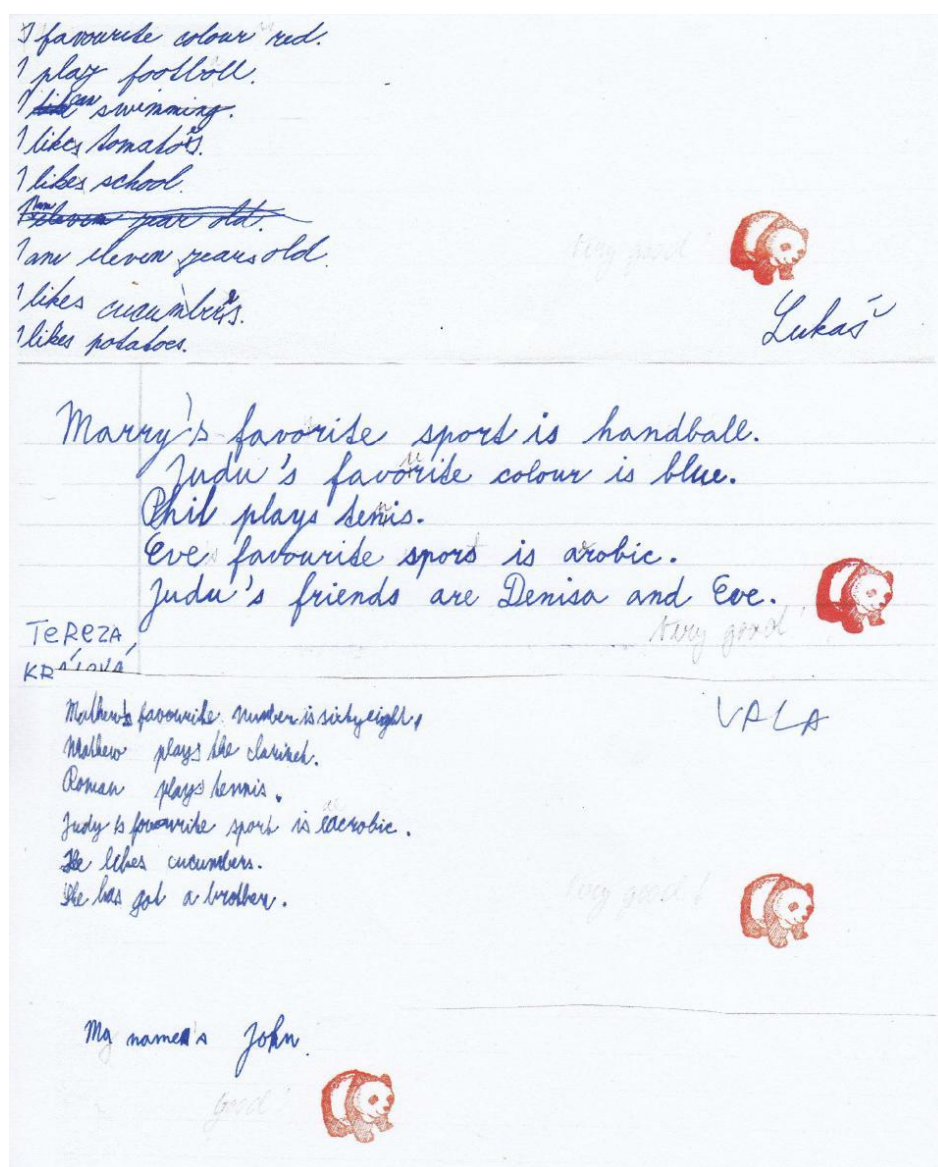 I favourite colour red.
I play football.
I can swimming.
I likes tomatoes.
I likes school.
I am eleven year old.
I am eleven years old.
very good!
I likes cucumbers.
I likes potatoes.
Lukáš
Marry's favorite sport is handball.
Judu's favourite colour is blue.
Phil plays tennis.
Eve favourite sport is arobic.
Judu's friends are Denisa and Eve.
Very good!
TEREZA
KRÁLOVÁ
VALA
Mathew's favourite number is sixty eight.
Mathew plays the clarinet.
Roman plays tennis.
Judy's favourite sport is aerobic.
He likes cucumbers.
She has got a brother.
Very good!
My name's John.
good!